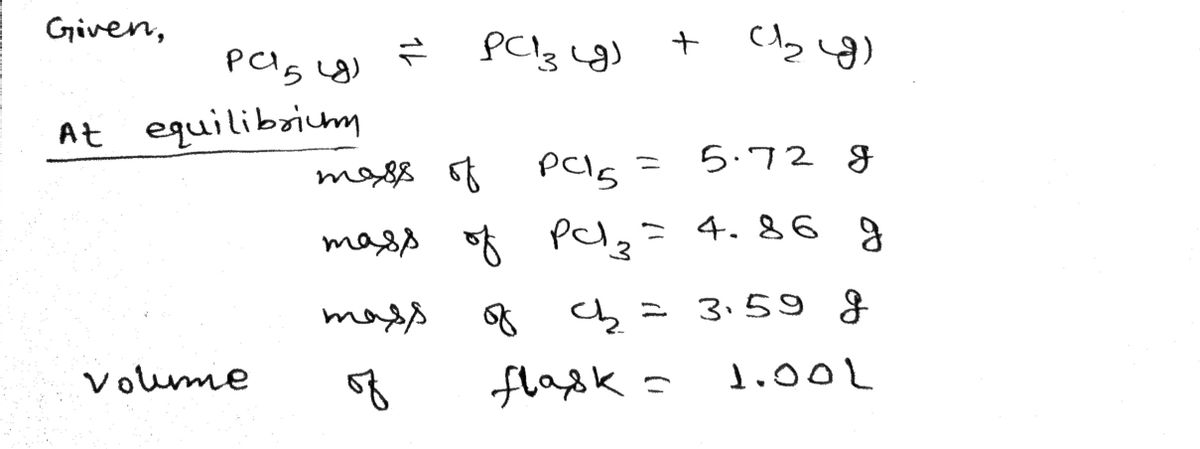 Given,
PCl5 (g) ⇌ PCl3 (g) + Cl2 (g)
At equilibrium
mass of PCl5 = 5.72 g
mass of PCl3 = 4.86 g
mass of Cl2 = 3.59 g
Volume of flask = 1.00L